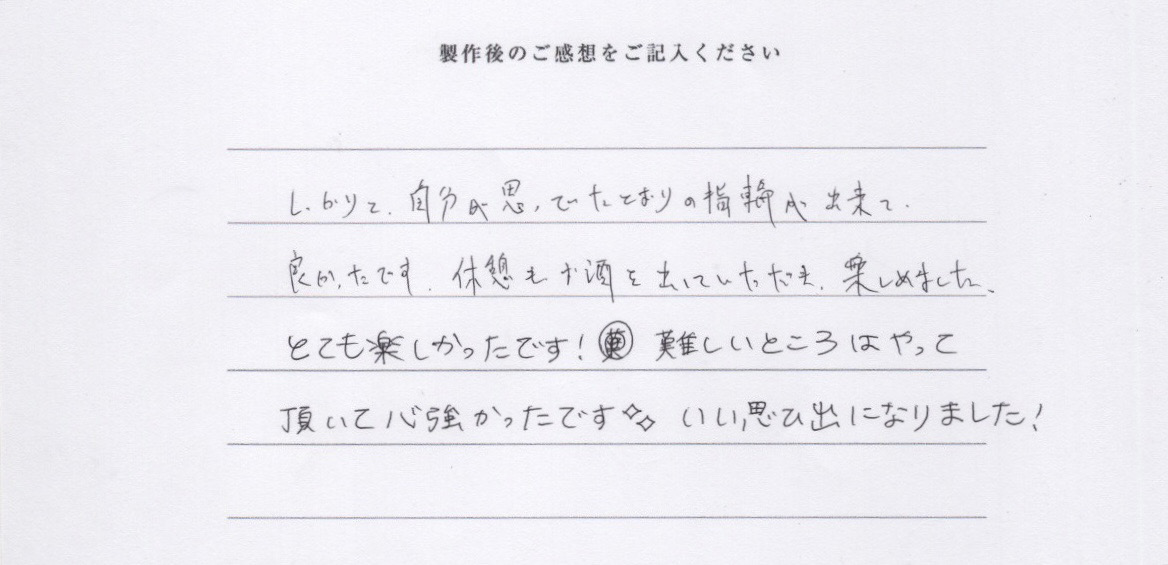 製作後のご感想をご記入ください
しっかりと、自分が思っていたとおりの指輪が出来て、
良かったです。休憩もお酒を出していただき、楽しめました。
とても楽しかったです！難しいところはやって
頂いて心強かったです✧✧ いい思ひ出になりました！